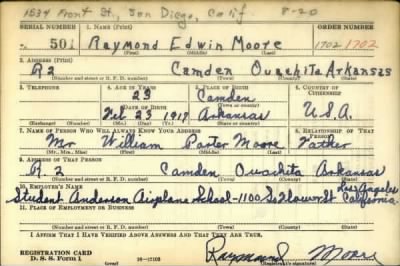 1534 Front St., San Diego, Calif 8-20
SERIAL NUMBER 1. NAME (Print) ORDER NUMBER
501 Raymond Edwin Moore 1702 1702
(First) (Middle) (Last)
2. ADDRESS (Print)
R2 Camden Ouachita Arkansas
(Number and street or R. F. D. number) (Town) (County) (State)
3. TELEPHONE 4. AGE IN YEARS 5. PLACE OF BIRTH 6. COUNTRY OF CITIZENSHIP
23 Camden
DATE OF BIRTH (Town or county)
Feb 23 1917 Arkansas U.S.A.
(Exchange) (Number) (Mo.) (Day) (Yr.) (State or country)
7. NAME OF PERSON WHO WILL ALWAYS KNOW YOUR ADDRESS 8. RELATIONSHIP OF THAT PERSON
Mr William Porter Moore Father
(Mr., Mrs., Miss) (First) (Middle) (Last)
9. ADDRESS OF THAT PERSON
R-2 Camden Ouachita Arkansas
(Number and street or R. F. D. number) (Town) (County) (State)
10. EMPLOYER'S NAME Los Angeles
Student Anderson Airplane School-1100 So California
11. PLACE OF EMPLOYMENT OR BUSINESS
(Number and street or R. F. D. number) (Town) (County) (State)
I AFFIRM THAT I HAVE VERIFIED ABOVE ANSWERS AND THAT THEY ARE TRUE.
REGISTRATION CARD
D. S. S. Form 1 Raymond Moore
(Registrant's signature)